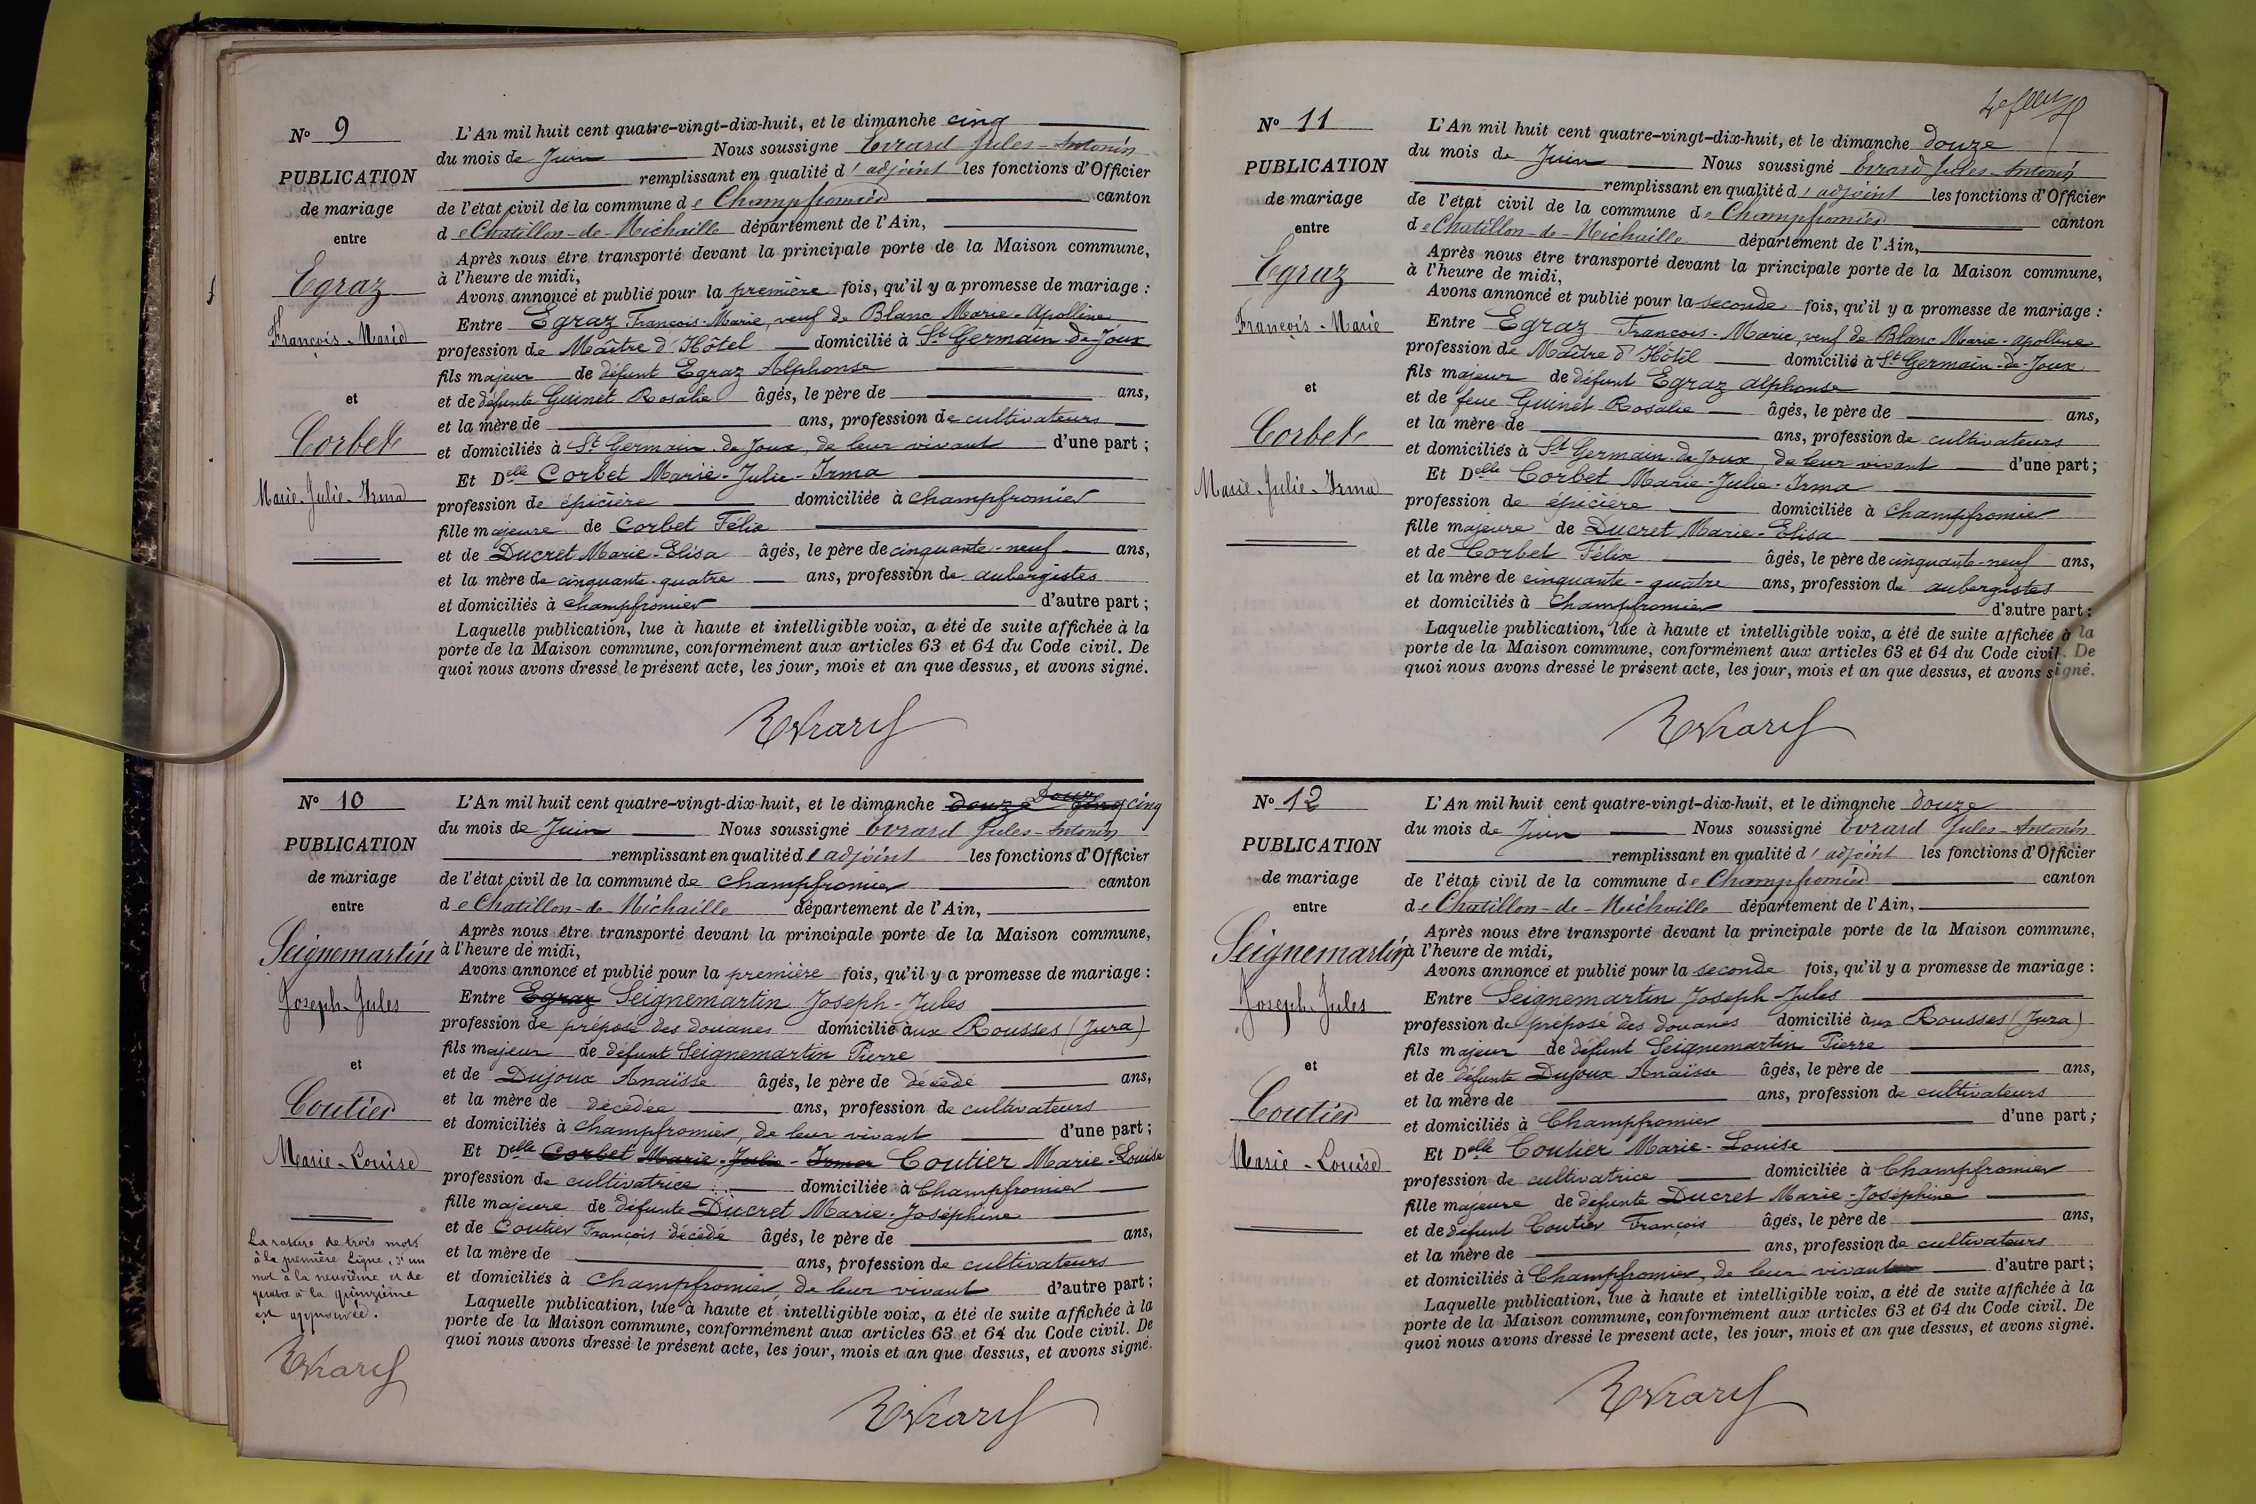 N° 9
PUBLICATION
de mariage
entre
Egraz
François-Marie
et
Corbet
Marie-Julie-Irma
L'An mil huit cent quatre-vingt-dix-huit, et le dimanche cinq
du mois de Juin Nous soussigné Evrard Jules-Antonin
remplissant en qualité d'adjoint les fonctions d'Officier
de l'état civil de la commune de Champfromier canton
de Chatillon-de-Michaille département de l'Ain,
Après nous être transporté devant la principale porte de la Maison commune,
à l'heure de midi,
Avons annoncé et publié pour la première fois, qu'il y a promesse de mariage :
Entre Egraz François-Marie, veuf de Blanc Marie-Apolline
profession de Maître d'Hôtel domicilié à St Germain de Joux
fils majeur de défunt Egraz Alphonse
et de défunte Guinet Rosalie âgés, le père de ans,
et la mère de ans, profession de cultivateurs
et domiciliés à St Germain de Joux, de leur vivant d'une part ;
Et Delle Corbet Marie-Julie-Irma
profession de épicière domiciliée à Champfromier
fille majeure de Corbet Félix
et de Ducret Marie-Elisa âgés, le père de cinquante-neuf ans,
et la mère de cinquante-quatre ans, profession de aubergistes
et domiciliés à Champfromier d'autre part ;
Laquelle publication, lue à haute et intelligible voix, a été de suite affichée à la
porte de la Maison commune, conformément aux articles 63 et 64 du Code civil. De
quoi nous avons dressé le présent acte, les jour, mois et an que dessus, et avons signé.
Evrard
N° 10
PUBLICATION
de mariage
entre
Seignemartin
Joseph-Jules
et
Coutier
Marie-Louise
La rature de trois mots
à la première ligne, d'un
mot à la neuvième et de
quatre à la quinzième
est approuvée.
Evrard
L'An mil huit cent quatre-vingt-dix-huit, et le dimanche douze douze cinq cinq
du mois de Juin Nous soussigné Evrard Jules-Antonin
remplissant en qualité d'adjoint les fonctions d'Officier
de l'état civil de la commune de Champfromier canton
de Chatillon-de-Michaille département de l'Ain,
Après nous être transporté devant la principale porte de la Maison commune,
à l'heure de midi,
Avons annoncé et publié pour la première fois, qu'il y a promesse de mariage :
Entre Egraz Seignemartin Joseph-Jules
profession de préposé des douanes domicilié aux Rousses (Jura)
fils majeur de défunt Seignemartin Pierre
et de Dujoux Anaïsse âgés, le père de décédé ans,
et la mère de décédée ans, profession de cultivateurs
et domiciliés à Champfromier, de leur vivant d'une part ;
Et Delle Corbet Marie-Julie-Irma Coutier Marie-Louise
profession de cultivatrice domiciliée à Champfromier
fille majeure de défunte Ducret Marie-Joséphine
et de Coutier François décédé âgés, le père de ans,
et la mère de ans, profession de cultivateurs
et domiciliés à Champfromier, de leur vivant d'autre part ;
Laquelle publication, lue à haute et intelligible voix, a été de suite affichée à la
porte de la Maison commune, conformément aux articles 63 et 64 du Code civil. De
quoi nous avons dressé le présent acte, les jour, mois et an que dessus, et avons signé.
Evrard
N° 11
PUBLICATION
de mariage
entre
Egraz
François-Marie
et
Corbet
Marie-Julie-Irma
L'An mil huit cent quatre-vingt-dix-huit, et le dimanche douze
du mois de Juin Nous soussigné Evrard Jules-Antonin
remplissant en qualité d'adjoint les fonctions d'Officier
de l'état civil de la commune de Champfromier canton
de Chatillon-de-Michaille département de l'Ain,
Après nous être transporté devant la principale porte de la Maison commune,
à l'heure de midi,
Avons annoncé et publié pour la seconde fois, qu'il y a promesse de mariage :
Entre Egraz François-Marie, veuf de Blanc Marie-Apolline
profession de Maître d'Hôtel domicilié à St Germain-de-Joux
fils majeur de défunt Egraz Alphonse
et de feue Guinet Rosalie âgés, le père de ans,
et la mère de ans, profession de cultivateurs
et domiciliés à St Germain-de-Joux, de leur vivant d'une part ;
Et Delle Corbet Marie-Julie-Irma
profession de épicière domiciliée à Champfromier
fille majeure de Ducret Marie-Elisa
et de Corbet Félix âgés, le père de cinquante-neuf ans,
et la mère de cinquante-quatre ans, profession de aubergistes
et domiciliés à Champfromier d'autre part ;
Laquelle publication, lue à haute et intelligible voix, a été de suite affichée à la
porte de la Maison commune, conformément aux articles 63 et 64 du Code civil. De
quoi nous avons dressé le présent acte, les jour, mois et an que dessus, et avons signé.
Evrard
N° 12
PUBLICATION
de mariage
entre
Seignemartin
Joseph-Jules
et
Coutier
Marie-Louise
L'An mil huit cent quatre-vingt-dix-huit, et le dimanche douze
du mois de Juin Nous soussigné Evrard Jules-Antonin
remplissant en qualité d'adjoint les fonctions d'Officier
de l'état civil de la commune de Champfromier canton
de Chatillon-de-Michaille département de l'Ain,
Après nous être transporté devant la principale porte de la Maison commune,
à l'heure de midi,
Avons annoncé et publié pour la seconde fois, qu'il y a promesse de mariage :
Entre Seignemartin Joseph-Jules
profession de préposé des douanes domicilié aux Rousses (Jura)
fils majeur de défunt Seignemartin Pierre
et de défunte Dujoux Anaïsse âgés, le père de ans,
et la mère de ans, profession de cultivateurs
et domiciliés à Champfromier d'une part ;
Et Delle Coutier Marie-Louise
profession de cultivatrice domiciliée à Champfromier
fille majeure de défunte Ducret Marie-Joséphine
et de défunt Coutier François âgés, le père de ans,
et la mère de ans, profession de cultivateurs
et domiciliés à Champfromier, de leur vivant d'autre part ;
Laquelle publication, lue à haute et intelligible voix, a été de suite affichée à la
porte de la Maison commune, conformément aux articles 63 et 64 du Code civil. De
quoi nous avons dressé le présent acte, les jour, mois et an que dessus, et avons signé.
Evrard